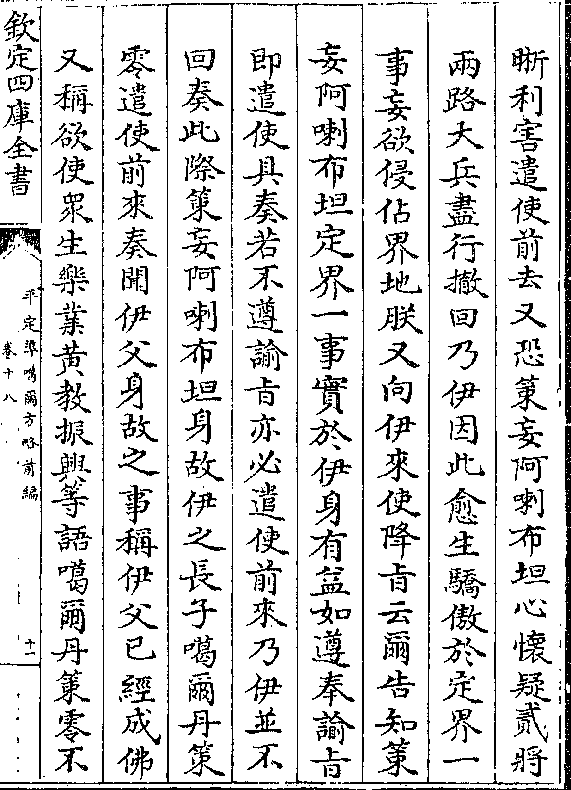 晰利害遣使前去又恐策妄阿喇布坦心懷疑貳將
兩路大兵盡行撤回乃伊因此愈生驕傲於定界一
事妄欲侵佔界地朕又向伊來使降旨云爾告知策
妄阿喇布坦定界一事實於伊身有益如遵奉諭旨
即遣使具奏若不遵諭旨亦必遣使前來乃伊並不
回奏此際策妄阿喇布坦身故伊之長子噶爾丹策
零遣使前來奏聞伊父身故之事稱伊父已經成佛
又稱欲使衆生樂業黃教振興等語噶爾丹策零不
欽定四庫全書
平定準噶爾方略前編
卷十八
十一